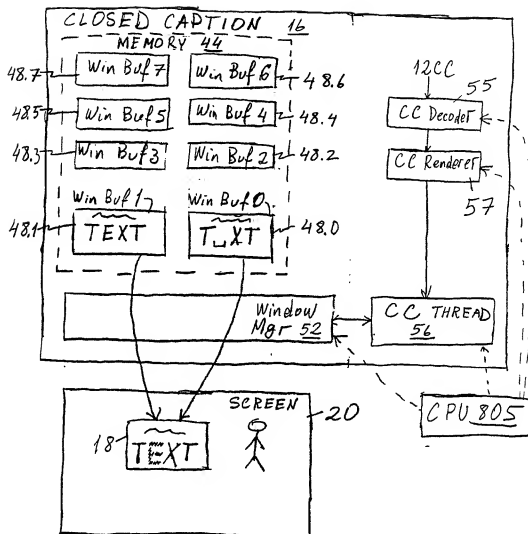 CLOSED CAPTION 16
MEMORY 44
48.7 Win Buf 7 Win Buf 6 48.6
48.5 Win Buf 5 Win Buf 4 48.4
48.3 Win Buf 3 Win Buf 2 48.2
Win Buf 1 Win Buf 0
48.1 TEXT T␣XT 48.0
12CC
CC Decoder 55
CC Renderer 57
Window Mgr 52
CC THREAD 56
CPU 805
SCREEN 20
18 TEXT